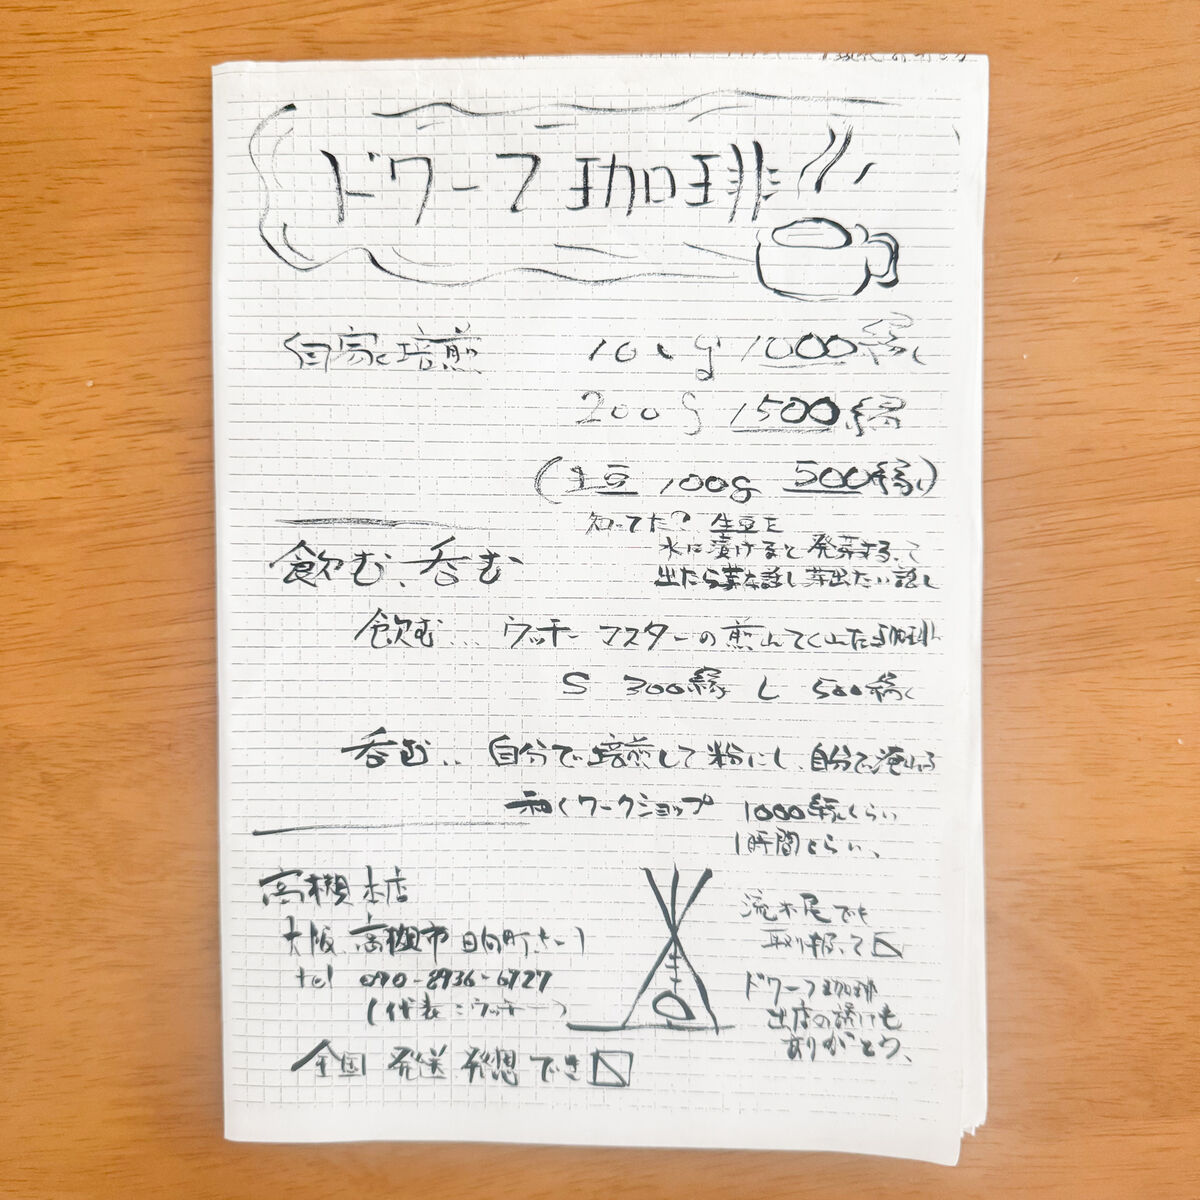 ドワーフ珈琲
自家培煎 100g 1000縁
200g 1500縁
(生豆 100g 500縁)
知ってた? 生豆を
飲む、呑む
水に漬けると発芽するって
出たら芽な話し芽出たい話し
飲む… ウッチーマスターの煎んてくれた珈琲
S 300縁 L 500縁
呑む.. 自分で培煎して粉にし、自分で淹れる
ワークショップ 1000縁くらい
1時間くらい、
高槻本店
大阪 高槻市 日向町
tel 090-8936-6727
(代表:ウッチー)
全国 発送 発想 でき
流木尾でも
取り扱って
ドワーフ珈琲
出店の
ありがとう、